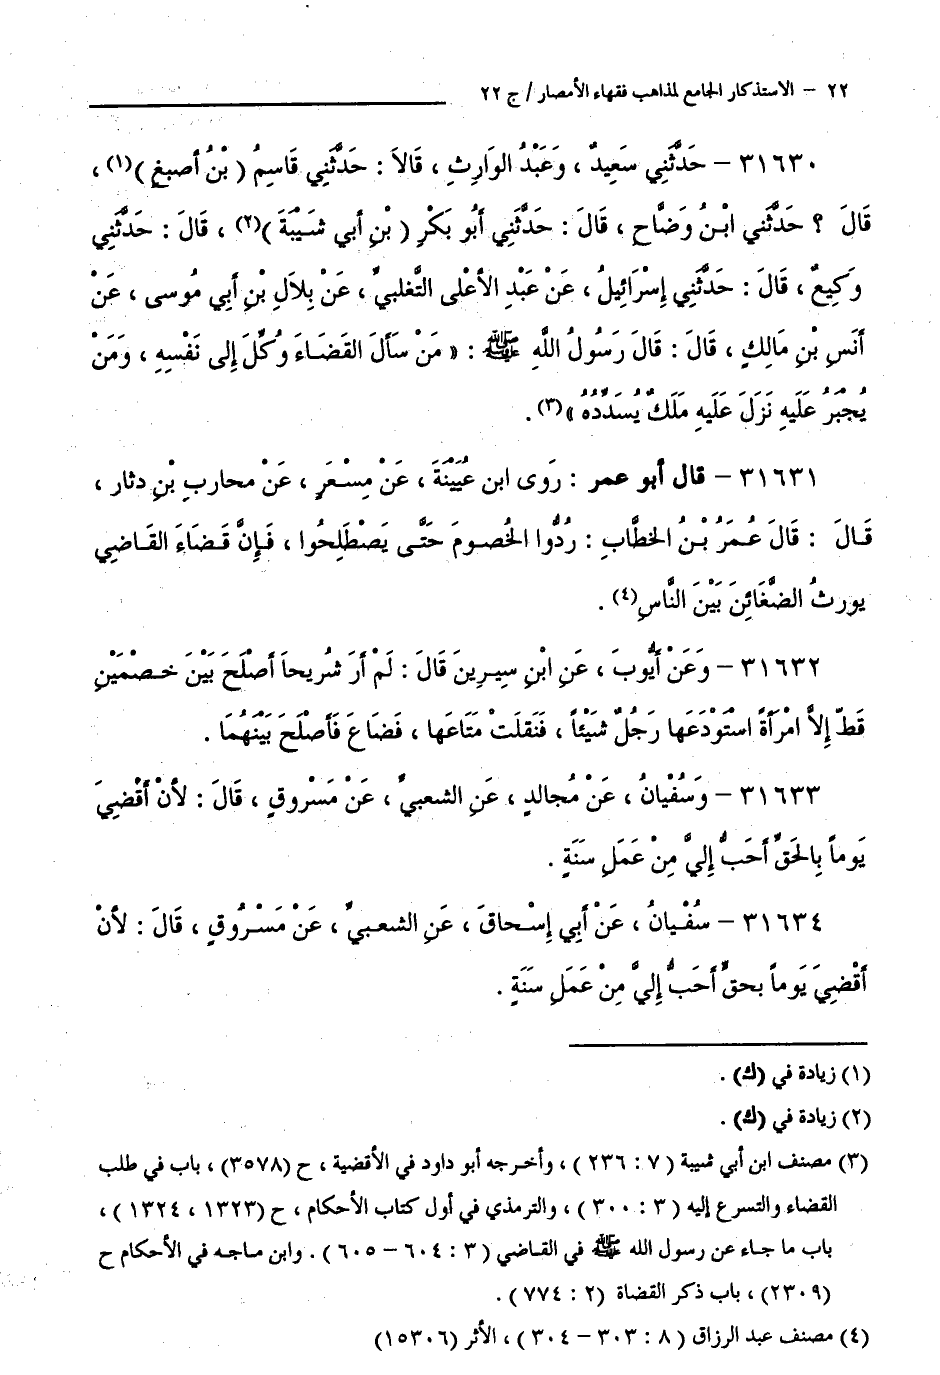 ٢٢ – الاستذكار الجامع لمذاهب فقهاء الأمصار / ج ٢٢
٣١٦٣٠ – حَدَّثَنِي سَعِيدٌ ، وَعَبْدُ الوَارِثِ ، قَالاَ : حَدَّثَنِي قَاسِمُ ( بْنُ أصبغٍ )(١) ،
قَالَ ؟ حَدَّثَنِي ابْنُ وَضَّاحٍ ، قَالَ : حَدَّثَنِي أَبُو بَكْرٍ ( بْنِ أبي شَيْبَةَ )(٢) ، قَالَ : حَدَّثَنِي
وَكِيعٌ ، قَالَ : حَدَّثَنِي إِسْرَائِيلُ ، عَنْ عَبْدِ الأعْلى التَّغلبيِّ ، عَنْ بِلاَلِ بْنِ أَبِي مُوسى ، عَنْ
أنَسِ بْنِ مَالِكٍ ، قَالَ : قَالَ رَسُولُ اللَّهِ ﷺ : « مَنْ سَأَلَ القَضَاءَ وُكِّلَ إِلى نَفْسِهِ ، وَمَنْ
يُجْبَرُ عَلَيهِ نَزَلَ عَلَيهِ مَلَكٌ يُسَدِّدُهُ »(٣) .
٣١٦٣١ – قال أبو عمر : رَوى ابن عُيَيْنَةَ ، عَنْ مِسْعَرٍ ، عَنْ محاربِ بْنِ دثار ،
قَالَ : قَالَ عُمَرُ بْنُ الخطَّابِ : رُدُّوا الخُصومَ حَتَّى يَصْطَلِحُوا ، فَإِنَّ قَضَاءَ القَاضِي
يورثُ الضَّغَائِنَ بَيْنَ النَّاسِ(٤) .
٣١٦٣٢ – وَعَنْ أَيُّوبَ ، عَنِ ابْنِ سِيرِينَ قَالَ : لَمْ أَرَ شُرِيحاً أَصْلَحَ بَيْنَ خصْمَيْنِ
قَطّ إِلاَّ امْرَأَةً اسْتَوْدَعَها رَجُلٌ شَيْئاً ، فَنَقَلَتْ مَتَاعَها ، فَضَاعَ فَأَصْلَحَ بَيْنَهُمَا .
٣١٦٣٣ – وَسُفْيانُ ، عَنْ مُجالدٍ ، عَنِ الشعبيِّ ، عَنْ مَسْروقٍ ، قَالَ : لأنْ أَقْضِيَ
يَوماً بِالحَقِّ أَحَبُّ إِليَّ مِنْ عَمَلِ سَنَةٍ .
٣١٦٣٤ – سُفْيانُ ، عَنْ أَبِي إِسْحاقَ ، عَنِ الشعبيِّ ، عَنْ مَسْرُوقٍ ، قَالَ : لأنْ
أَقْضِيَ يَوماً بحقٍّ أَحَبُّ إِليَّ مِنْ عَمَلِ سَنَةٍ .
(١) زيادة في (ك) .
(٢) زيادة في (ك) .
(٣) مصنف ابن أبي شيبة ( ٧ : ٢٣٦ ) ، وأخرجه أبو داود في الأقضية ، ح (٣٥٧٨) ، باب في طلب
القضاء والتسرع إليه ( ٣ : ٣٠٠ ) ، والترمذي في أول كتاب الأحكام ، ح (١٣٢٣ ، ١٣٢٤ ) ،
باب ما جاء عن رسول الله ﷺ في القاضي ( ٣ : ٦٠٤ – ٦٠٥ ) . وابن ماجه في الأحكام ح
(٢٣٠٩) ، باب ذكر القضاة (٢ : ٧٧٤ ) .
(٤) مصنف عبد الرزاق ( ٨ : ٣٠٣ – ٣٠٤ ) ، الأثر (١٥٣٠٦)